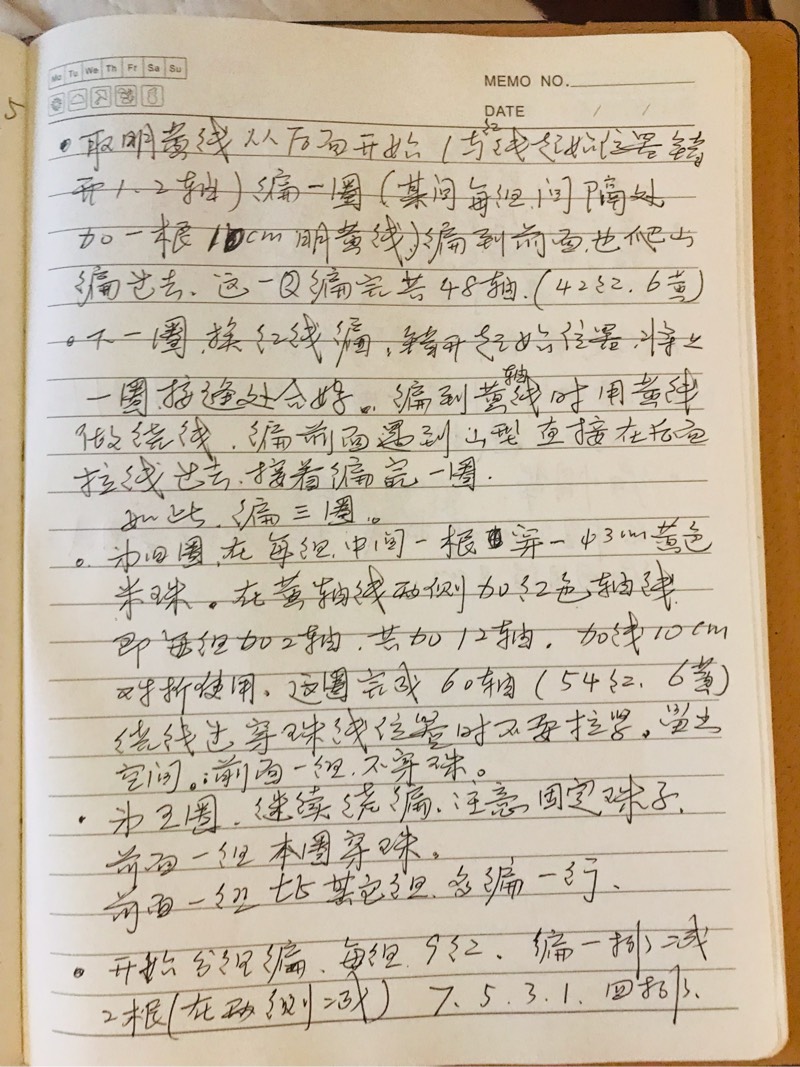 5
Mo Tu We Th Fr Sa Su
MEMO NO.
DATE / /
• 取明黄线从后面开始(与红线起始位置错
开1.2轴)编一圈(某间每组,间隔处
加一根10cm明黄线)编到前面,也爬山
编过去.这一Q编完共48轴.(42红.6黄)
• 下一圈,换红线编,错开起始位置,将上
一圈接缝处合好。编到黄轴线时用黄线
做绕线.编前面遇到山型直接在后面
拉线过去.接着编完一圈.
如此,编三圈。
• 为四圈,在每组,中间一根穿一Φ3cm黄色
米珠。在黄轴线两侧加红色轴线
即每组加2轴.共加12轴.加线10cm
对折使用.这圈完成60轴(54红.6黄)
绕线过穿珠线位置时不要拉紧,留出
空间。前面一组,不穿珠。
• 为五圈.继续绕编.注意固定珠子.
前面一组本圈穿珠。
前面一组比其它组.多编一行.
• 开始分组编.每组9红.编一排减
2根(在两侧减) 7.5.3.1.四排.